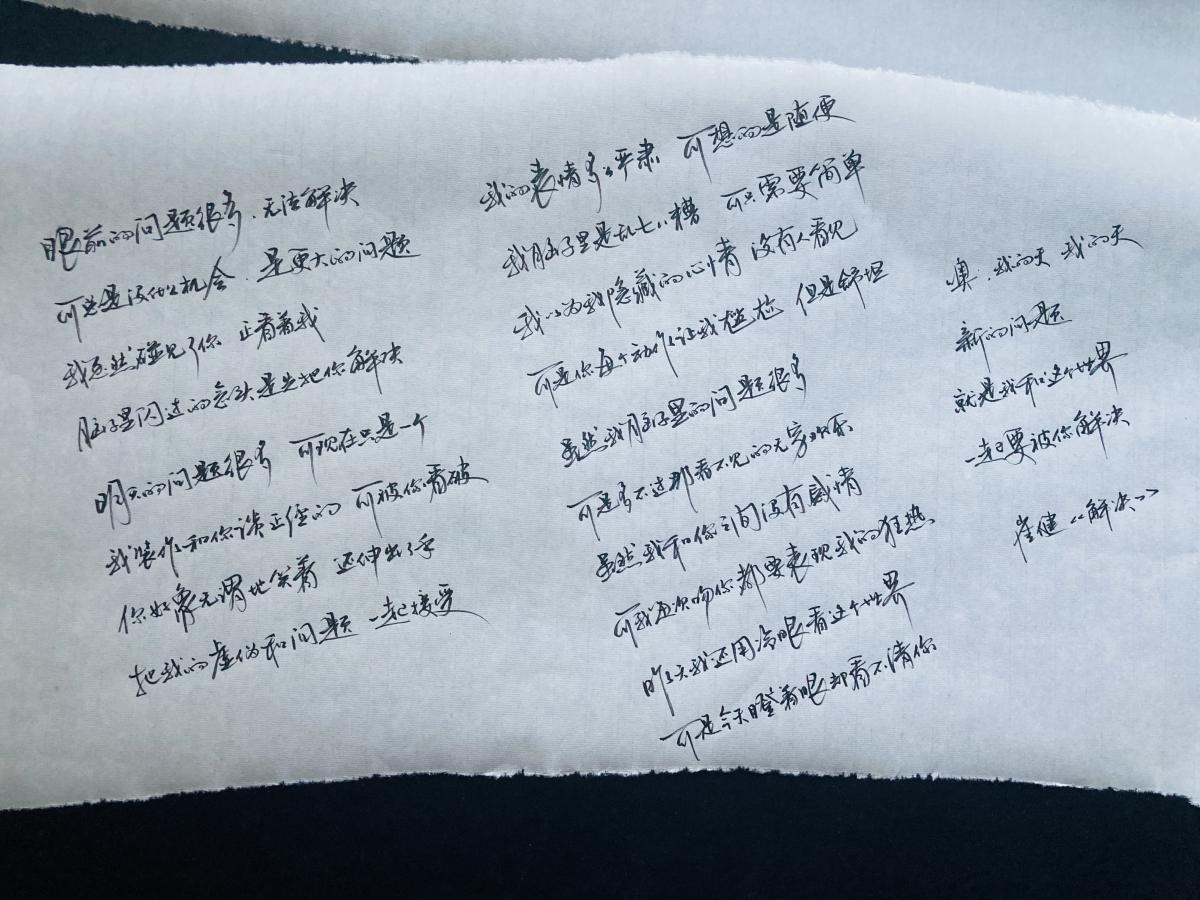 眼前的问题很多、无法解决
可总是没什么机会、是更大的问题
我忽然碰见了你 正看着我
脑子里闪过的念头是先把你解决
明天的问题很多 可现在只是一个
我装作和你谈正经的 可被你看破
你好象无谓地笑着 还伸出了手
把我的虚伪和问题 一起接受
我的表情多么严肃 可想的是随便
我脑子里是乱七八糟 可只需要简单
我以为我隐藏的心情 没有人看见
可是你每个动作让我尴尬 但是舒坦
虽然我脑子里的问题很多
可是多不过那看不见的无穷欢乐
虽然我和你之间没有感情
可我每次吻你都要表现我的狂热、
昨天我还用冷眼看这个世界
可是今天瞪着眼却看不清你
噢、我的天 我的天
新的问题
就是我和这个世界
一起要被你解决
崔健《解决》